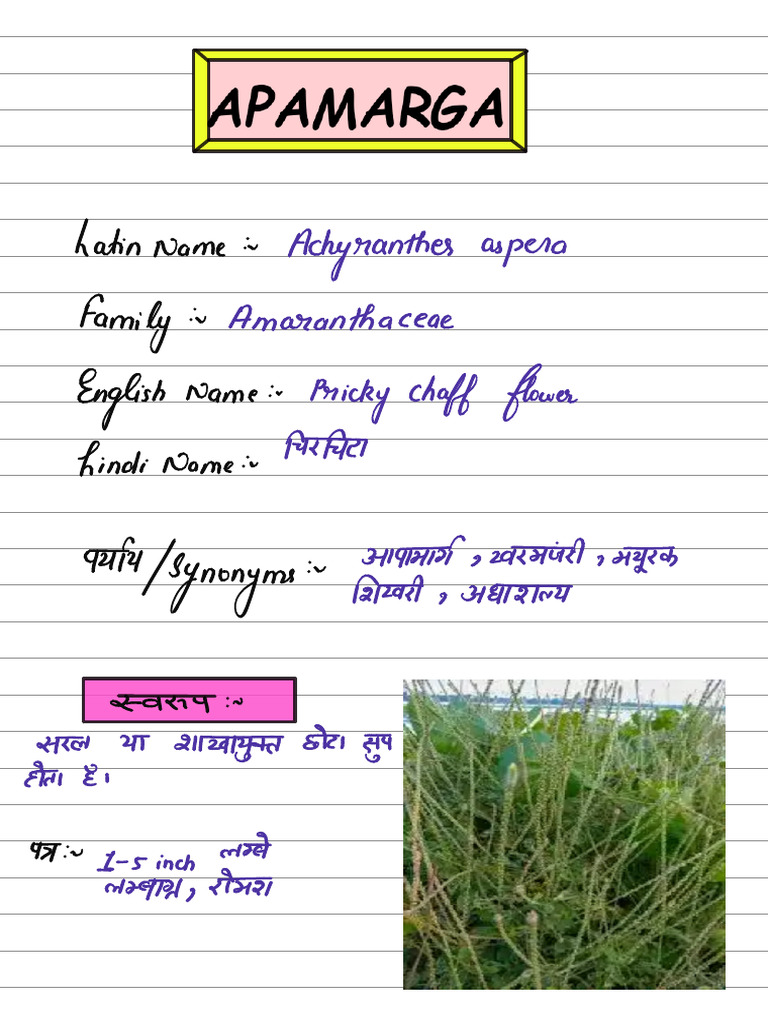 APAMARGA
Latin Name :~ Achyranthes aspera
Family :~ Amaranthaceae
English Name :~ Pricky chaff flower
hindi Name :~ चिरचिटा
पर्याय /Synonyms :~ आपामार्ग , खरमजंरी , मयूरक
शिखरी , अधाशल्य
स्वरुप :~
सरल या शाखायुक्त छोटा सुप
होता है।
पत्र :~ 1-5 inch लम्बे
लम्बाग्र , रोमश